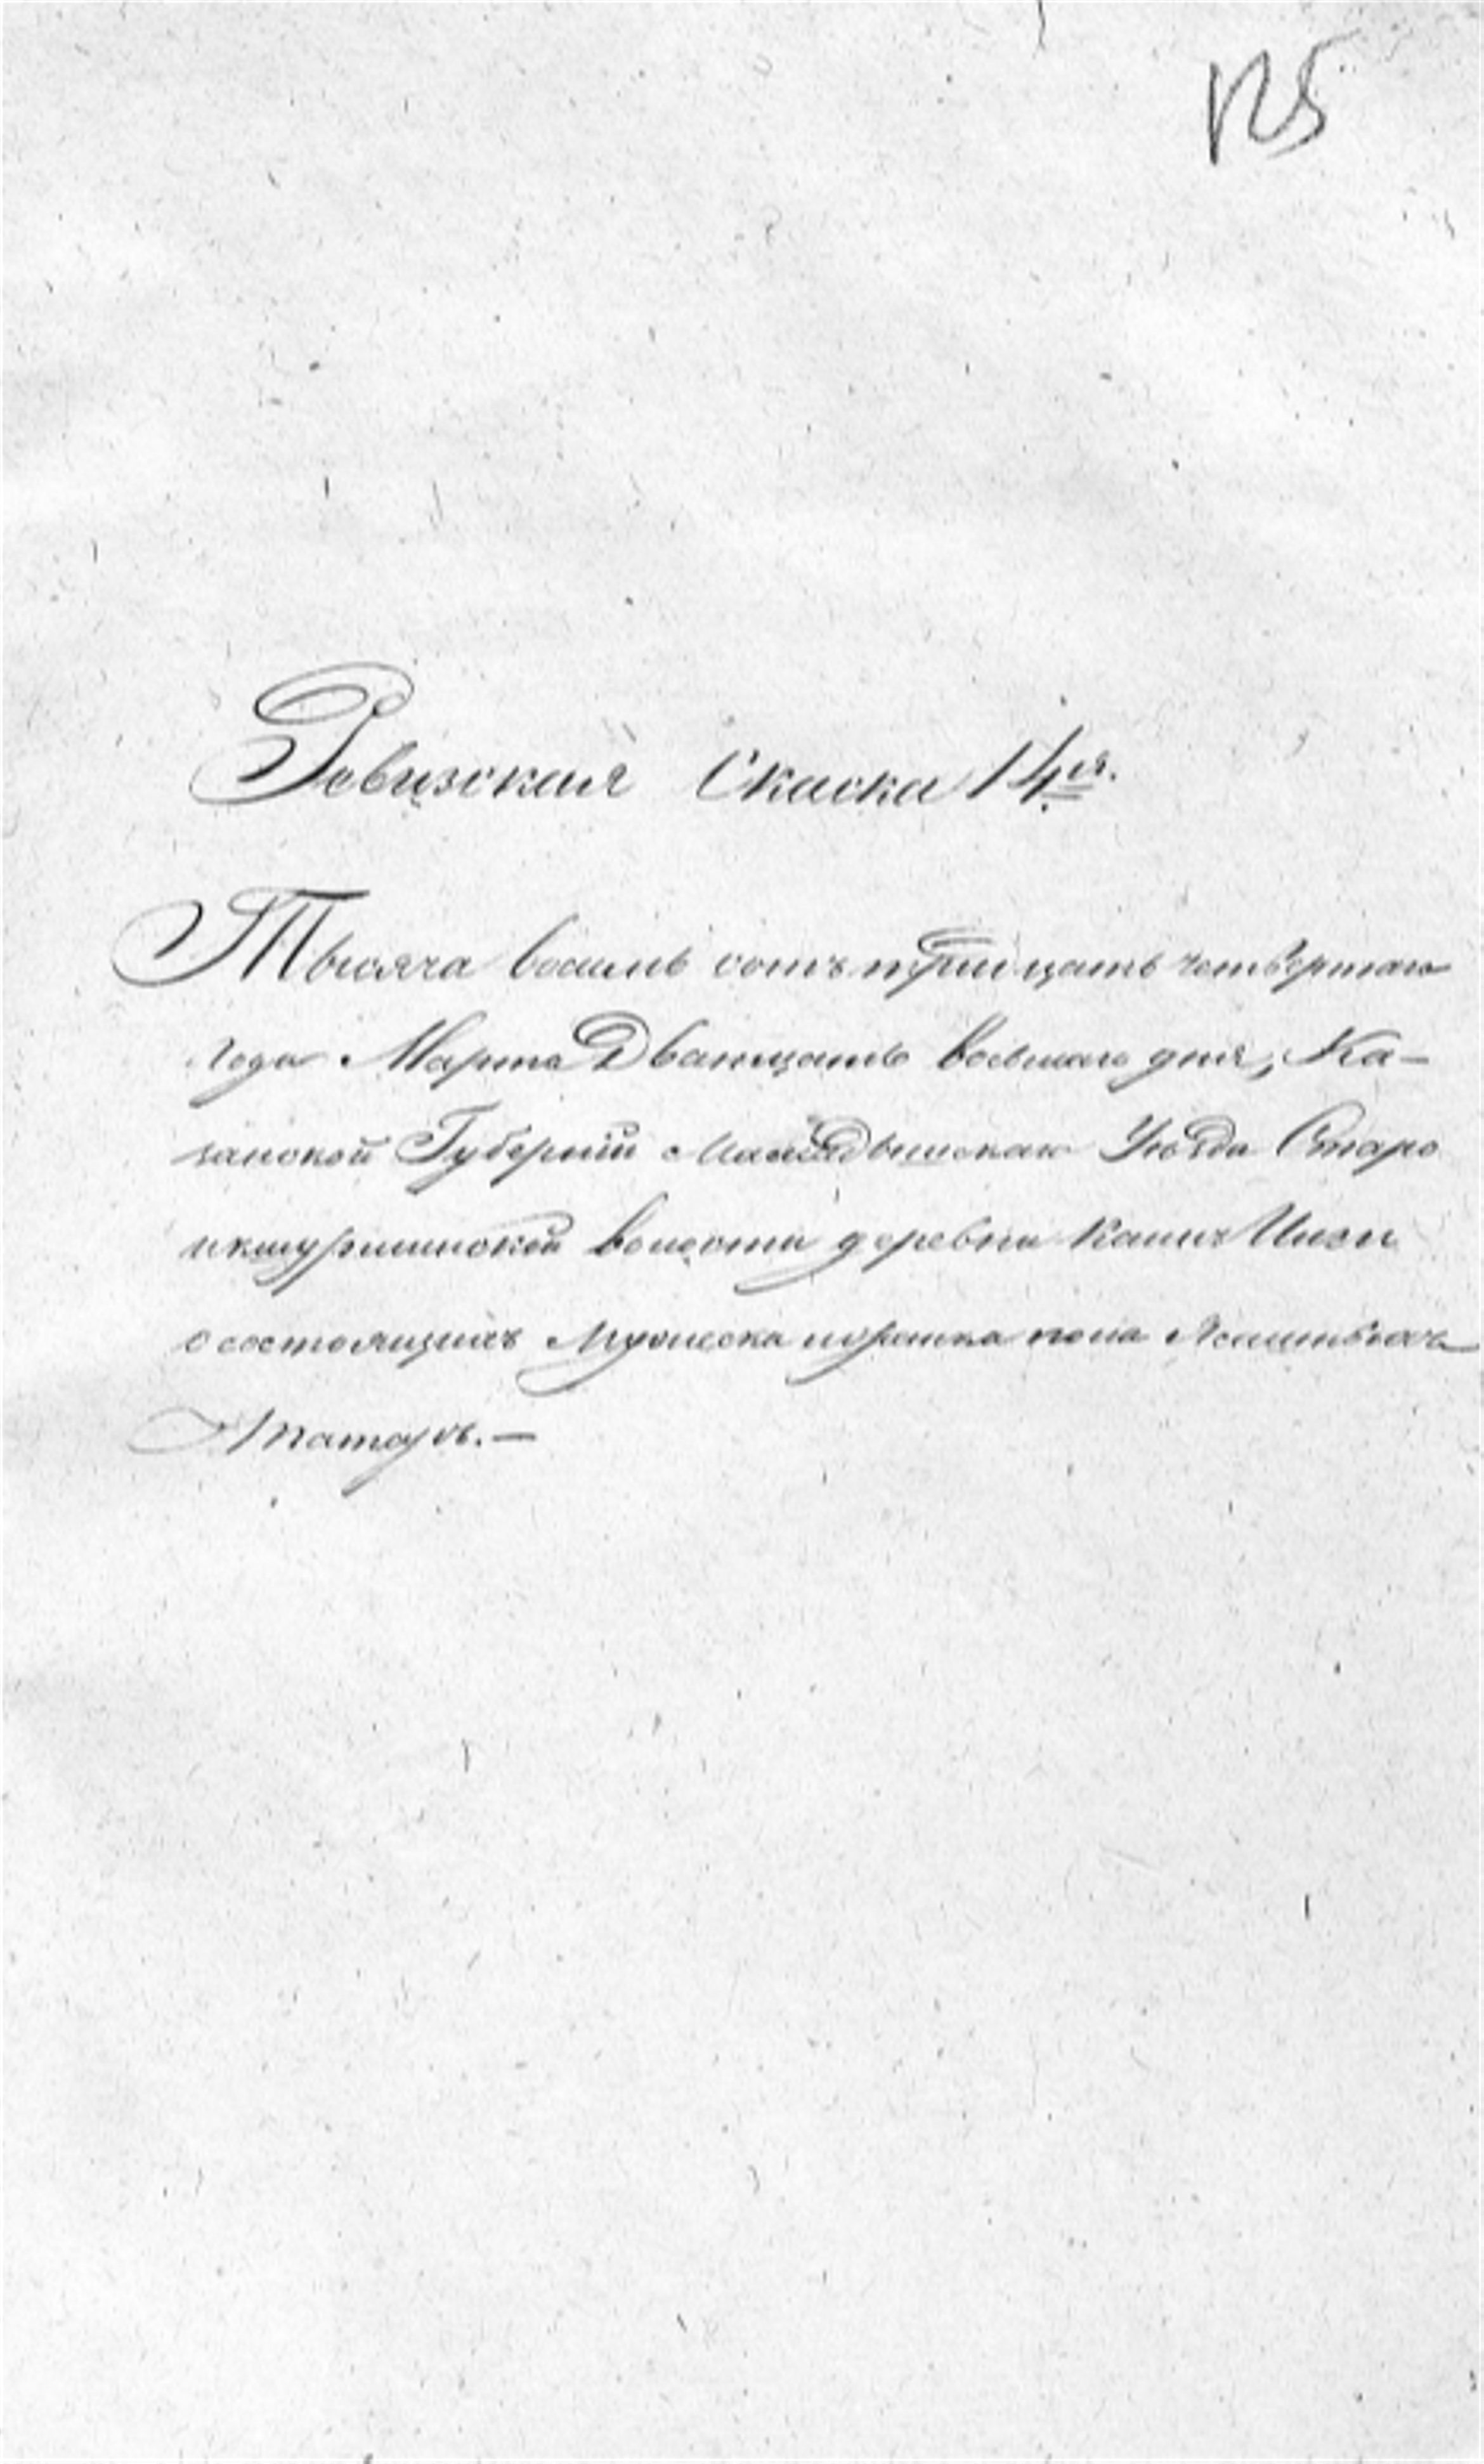 125
Ревизская Скаска 14ая.
Тысяча восемь сотъ тридцать четвертаго
года Марта Двантцать восьмаго дня, Ка-
занской Губерніи Мамадышскаго Уѣзда Старо
икшурминской волости деревни
о состоящихъ Мужеска и женска пола Ясашныхъ
Татаръ.—